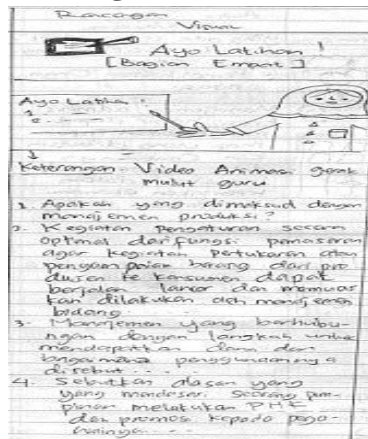 Rancangan
Visual
Ayo Latihan!
[Bagian Empat]
Ayo Latihan!
Keterangan Video Animasi gerak
mulut guru
1. Apakah yang dimaksud dengan
manajemen produksi?
2. Kegiatan Pengaturan secara
optimal dari fungsi pemasaran
agar kegiatan pertukaran atau
penyampaian barang dari pro
dusen ke konsumen dapat
berjalan lancar dan memuas
kan dilakukan oleh manajemen
bidang...
3. Manajemen yang berhubu-
ngan dengan langkah untuk
mendapatkan dana dan
bagaimana penggunaannya
disebut...
4. Sebutkan alasan yang
yang mendasari seorang pim-
pinan melakukan PHK
dan promosi kepada pega-
wainya....